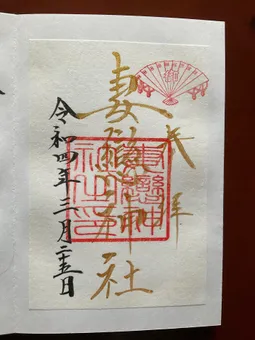 奉拝
妻戀神社
妻戀神
社之印
令和四年三月二十五日